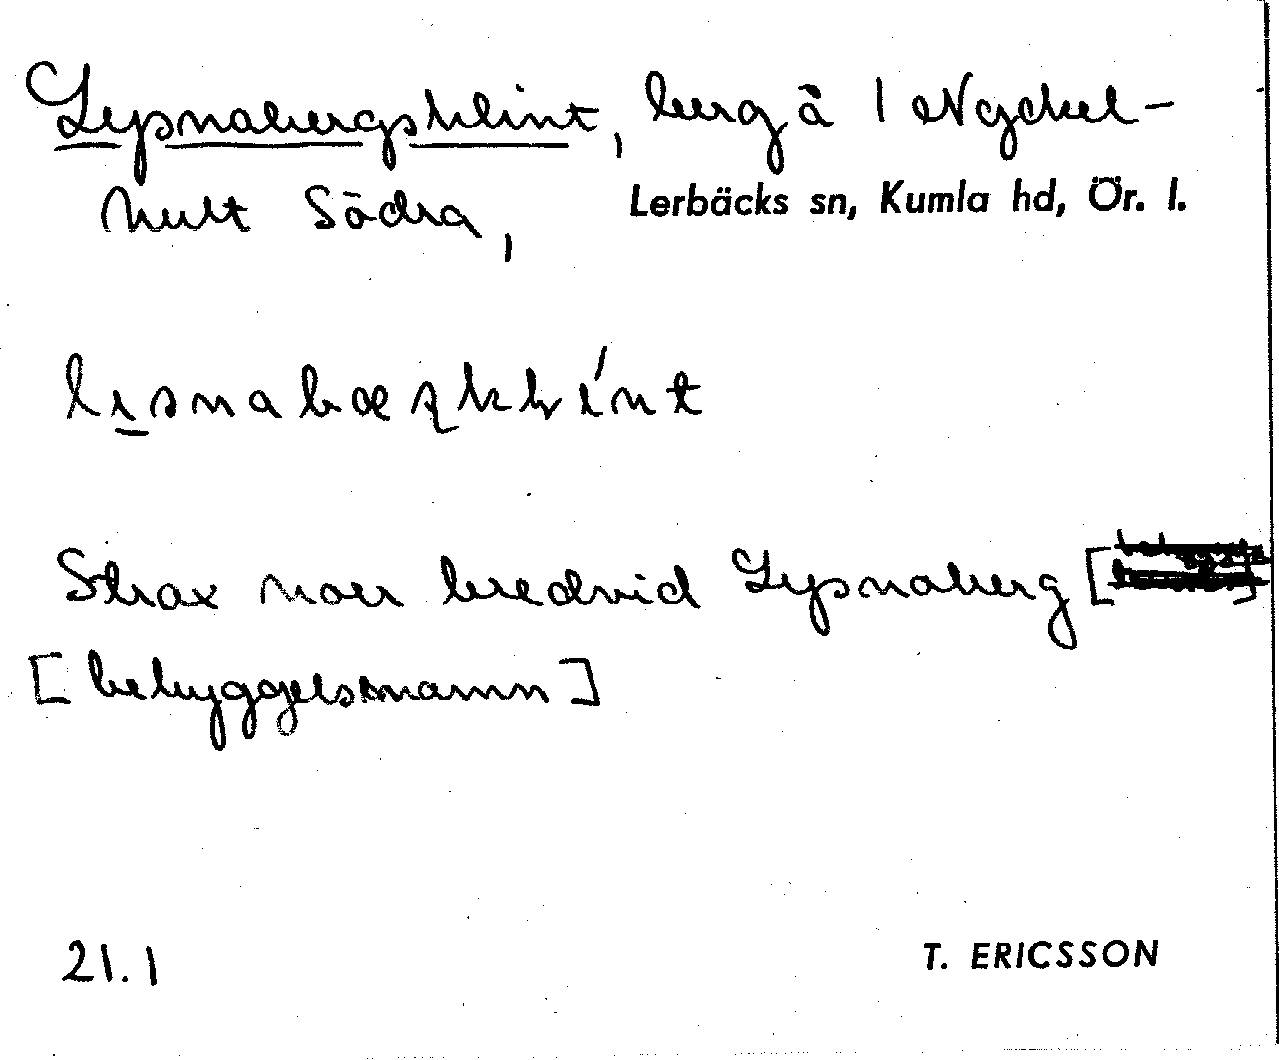 Lysnabergsklint, berg å 1 Nyckel-
hult Södra,
Lerbäcks sn, Kumla hd, Ör. l.
Strax norr bredvid Lysnaberg [
[bebyggelsenamn]
21.1
T. ERICSSON